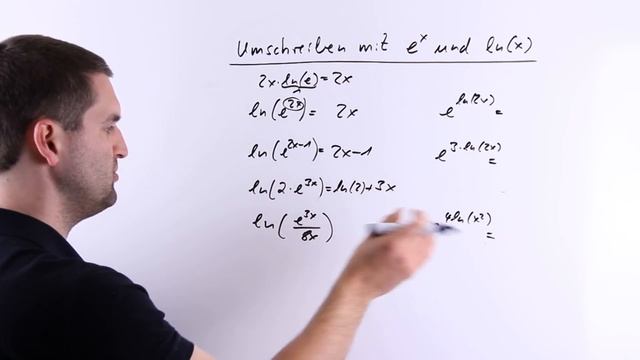 Umschreiben mit e^x und ln(x)
2x·ln(e)=2x
ln(e^2x)= 2x
e^ln(2x)=
ln(e^2x-1)= 2x-1
e^3·ln(2x)=
ln(2·e^3x)=ln(2)+3x
ln(e^3x/8x)
4ln(x²)
=